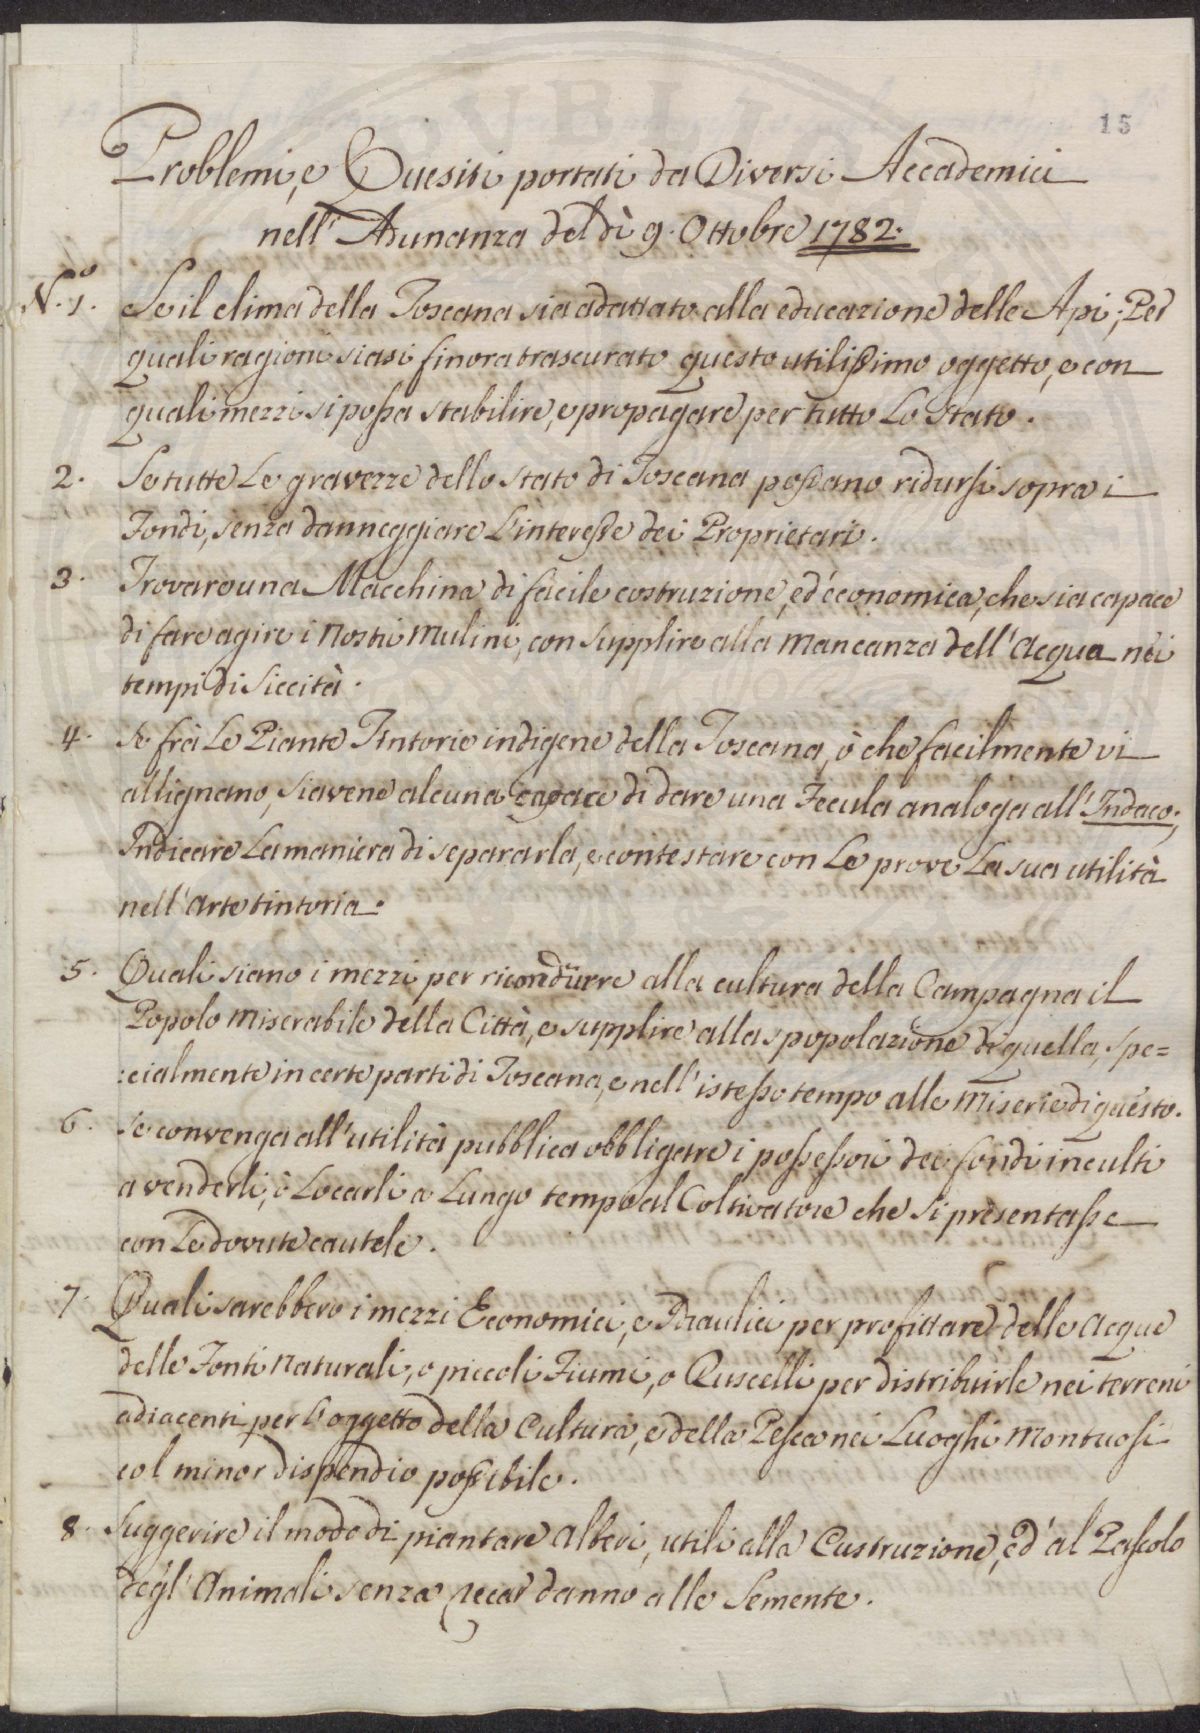 15
Problemi, e Quesiti portati da Diversi Accademici
nell'Adunanza del dì 9. Ottobre 1782.
N.º 1. Se il clima della Toscana sia adattato alla educazione delle Api; Per
quali ragioni siasi finora trascurato questo utilissimo oggetto, e con
quali mezzi si possa stabilire, e propagare per tutto Lo Stato.
2. Se tutte Le gravezze dello Stato di Toscana possano ridursi sopra i
Fondi, senza danneggiare L'interesse dei Proprietari.
3. Trovare una Macchina di facile costruzione, ed economica, che sia capace
di fare agire i Nostri Mulini, con supplire alla Mancanza dell'Acqua nei
tempi di Siccità.
4. Se frà Le Piante Tintorie indigene della Toscana, ò che facilmente vi
allignano, siavene alcuna capace di dare una Fecula analoga all'Indaco;
Indicare La maniera di separarla, e contestare con Le prove La sua utilità
nell'Arte tintoria.
5. Quali siano i mezzi per ricondurre alla cultura della Campagna il
Popolo Miserabile della Città, e supplire alla spopolazione di quella, spe=
:cialmente in certe parti di Toscana, e nell'istesso tempo alle Miserie di questo.
6. Se convenga all'utilità pubblica obbligare i possessori dei fondi inculti
a venderli, ò Locarli a Lungo tempo al Coltivatore che si presentasse
con Le dovute cautele.
7. Quali sarebbero i mezzi Economici, e Idraulici per profittare delle Acque
delle Fonti Naturali, o piccoli Fiumi, o Ruscelli per distribuirle nei terreni
adiacenti per L'oggetto della Cultura, e della Pesca nei Luoghi Montuosi
col minor dispendio possibile.
8. Suggerire il modo di piantare Alberi, utili alla Custruzione, ed al Pascolo
degl'Animali senza recar danno alle Semente.